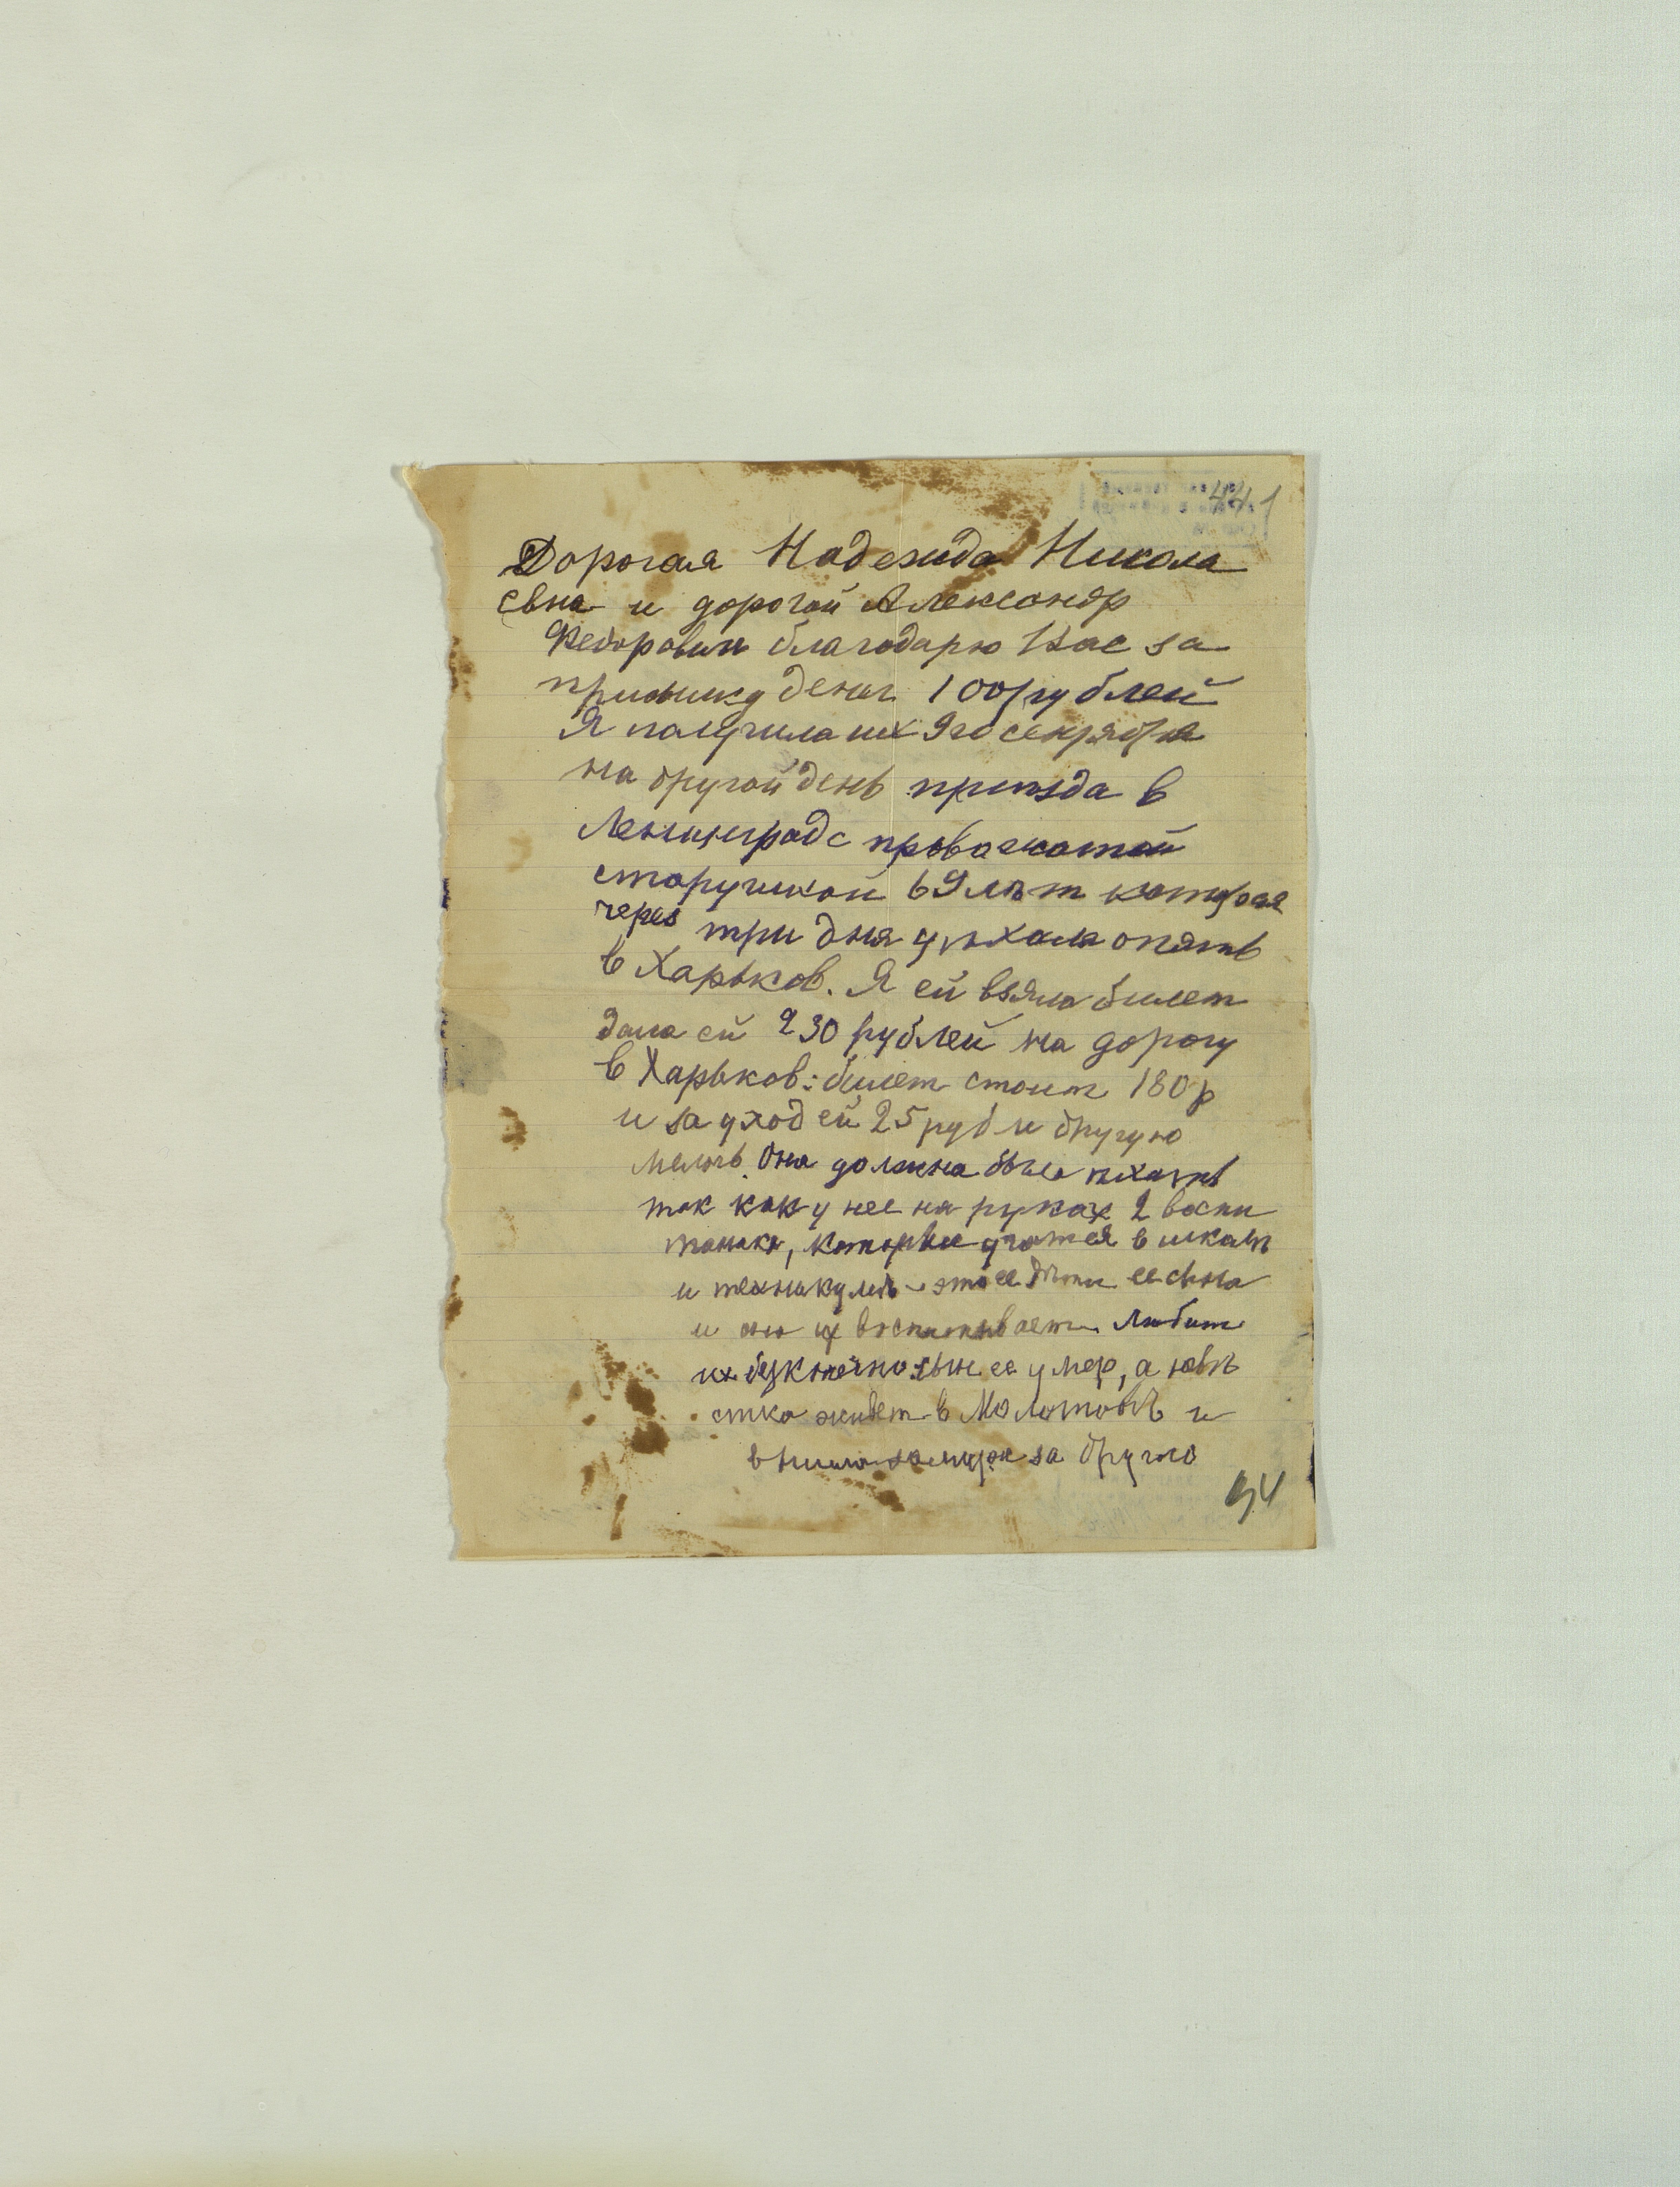 441
Дорогая Надежда Никола
евна и дорогой Александр
Федорович благодарю Вас за
присылку денег 100 рублей
Я получила их 9го сентября
на другой день приѣзда в
Ленинград с провожатой
старушкой 69 лѣт которая
через три дня уѣхала опять
в Харьков. Я ей взяла билет
дала ей 230 рублей на дорогу
в Харьков: билет стоит 180 р
и за уход ей 25 руб и другую
мелочь. Она должна была ѣхать
так как у нее на руках 2 воспи
танника, которые учатся в школѣ
и техникумѣ – это ее дѣти ее сына
и она их воспитывает. Любит
их безконечно: сын ее умер, а невѣ
стка живет в Молотовѣ и
вышла замуж за другого
94